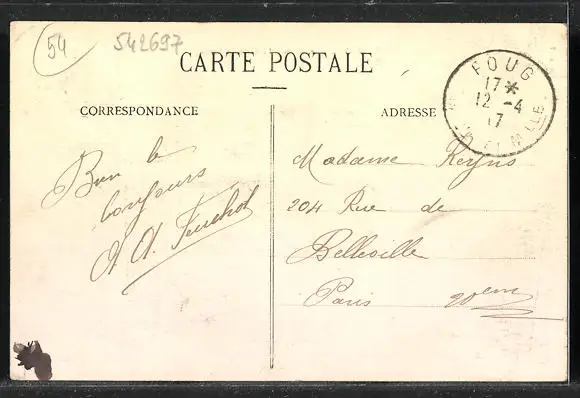 54
542697
CARTE POSTALE
CORRESPONDANCE
ADRESSE
FOUG
17*
12-4
17
Mthe ET MELLE
Bon le
bonjours
A. Feuchot
Madame Keyns
204 Rue de
Belleville
Paris 20eme